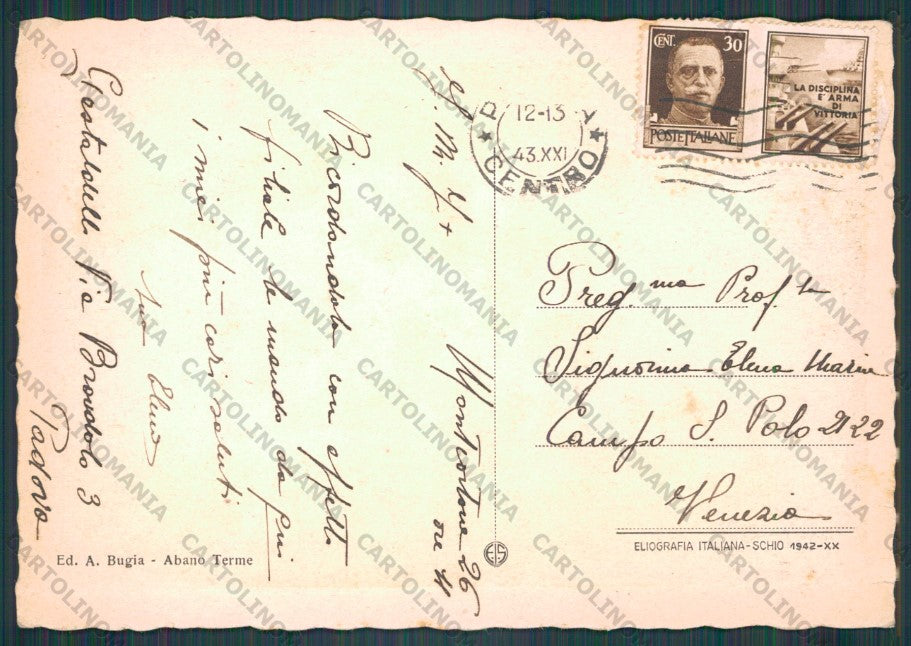 CENT. 30
POSTE ITALIANE
LA DISCIPLINA
E' ARMA
DI
VITTORIA
12-13
43.XXI
CENTRO
Montortone 26
ore 11
Ricordandola con affetto
filiale le mando da qui
i miei più cari saluti
sua
Via Brondolo 3
Padova
Preg.ma Prof.ta
Signorina Elena Marin
Campo S. Polo 2122
Venezia
ELIOGRAFIA ITALIANA-SCHIO 1942-XX
Ed. A. Bugia - Abano Terme
CARTOLINOMANIA